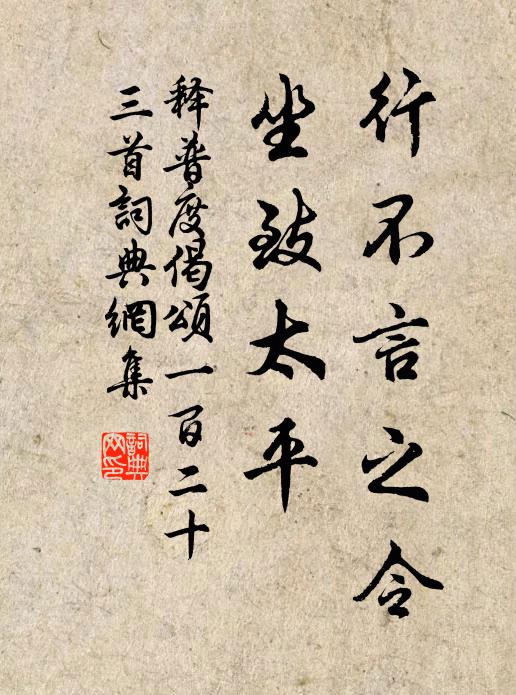 行不言之令
坐致太平
释普度偈頌一百二十
三首詞典網集
詞典網印